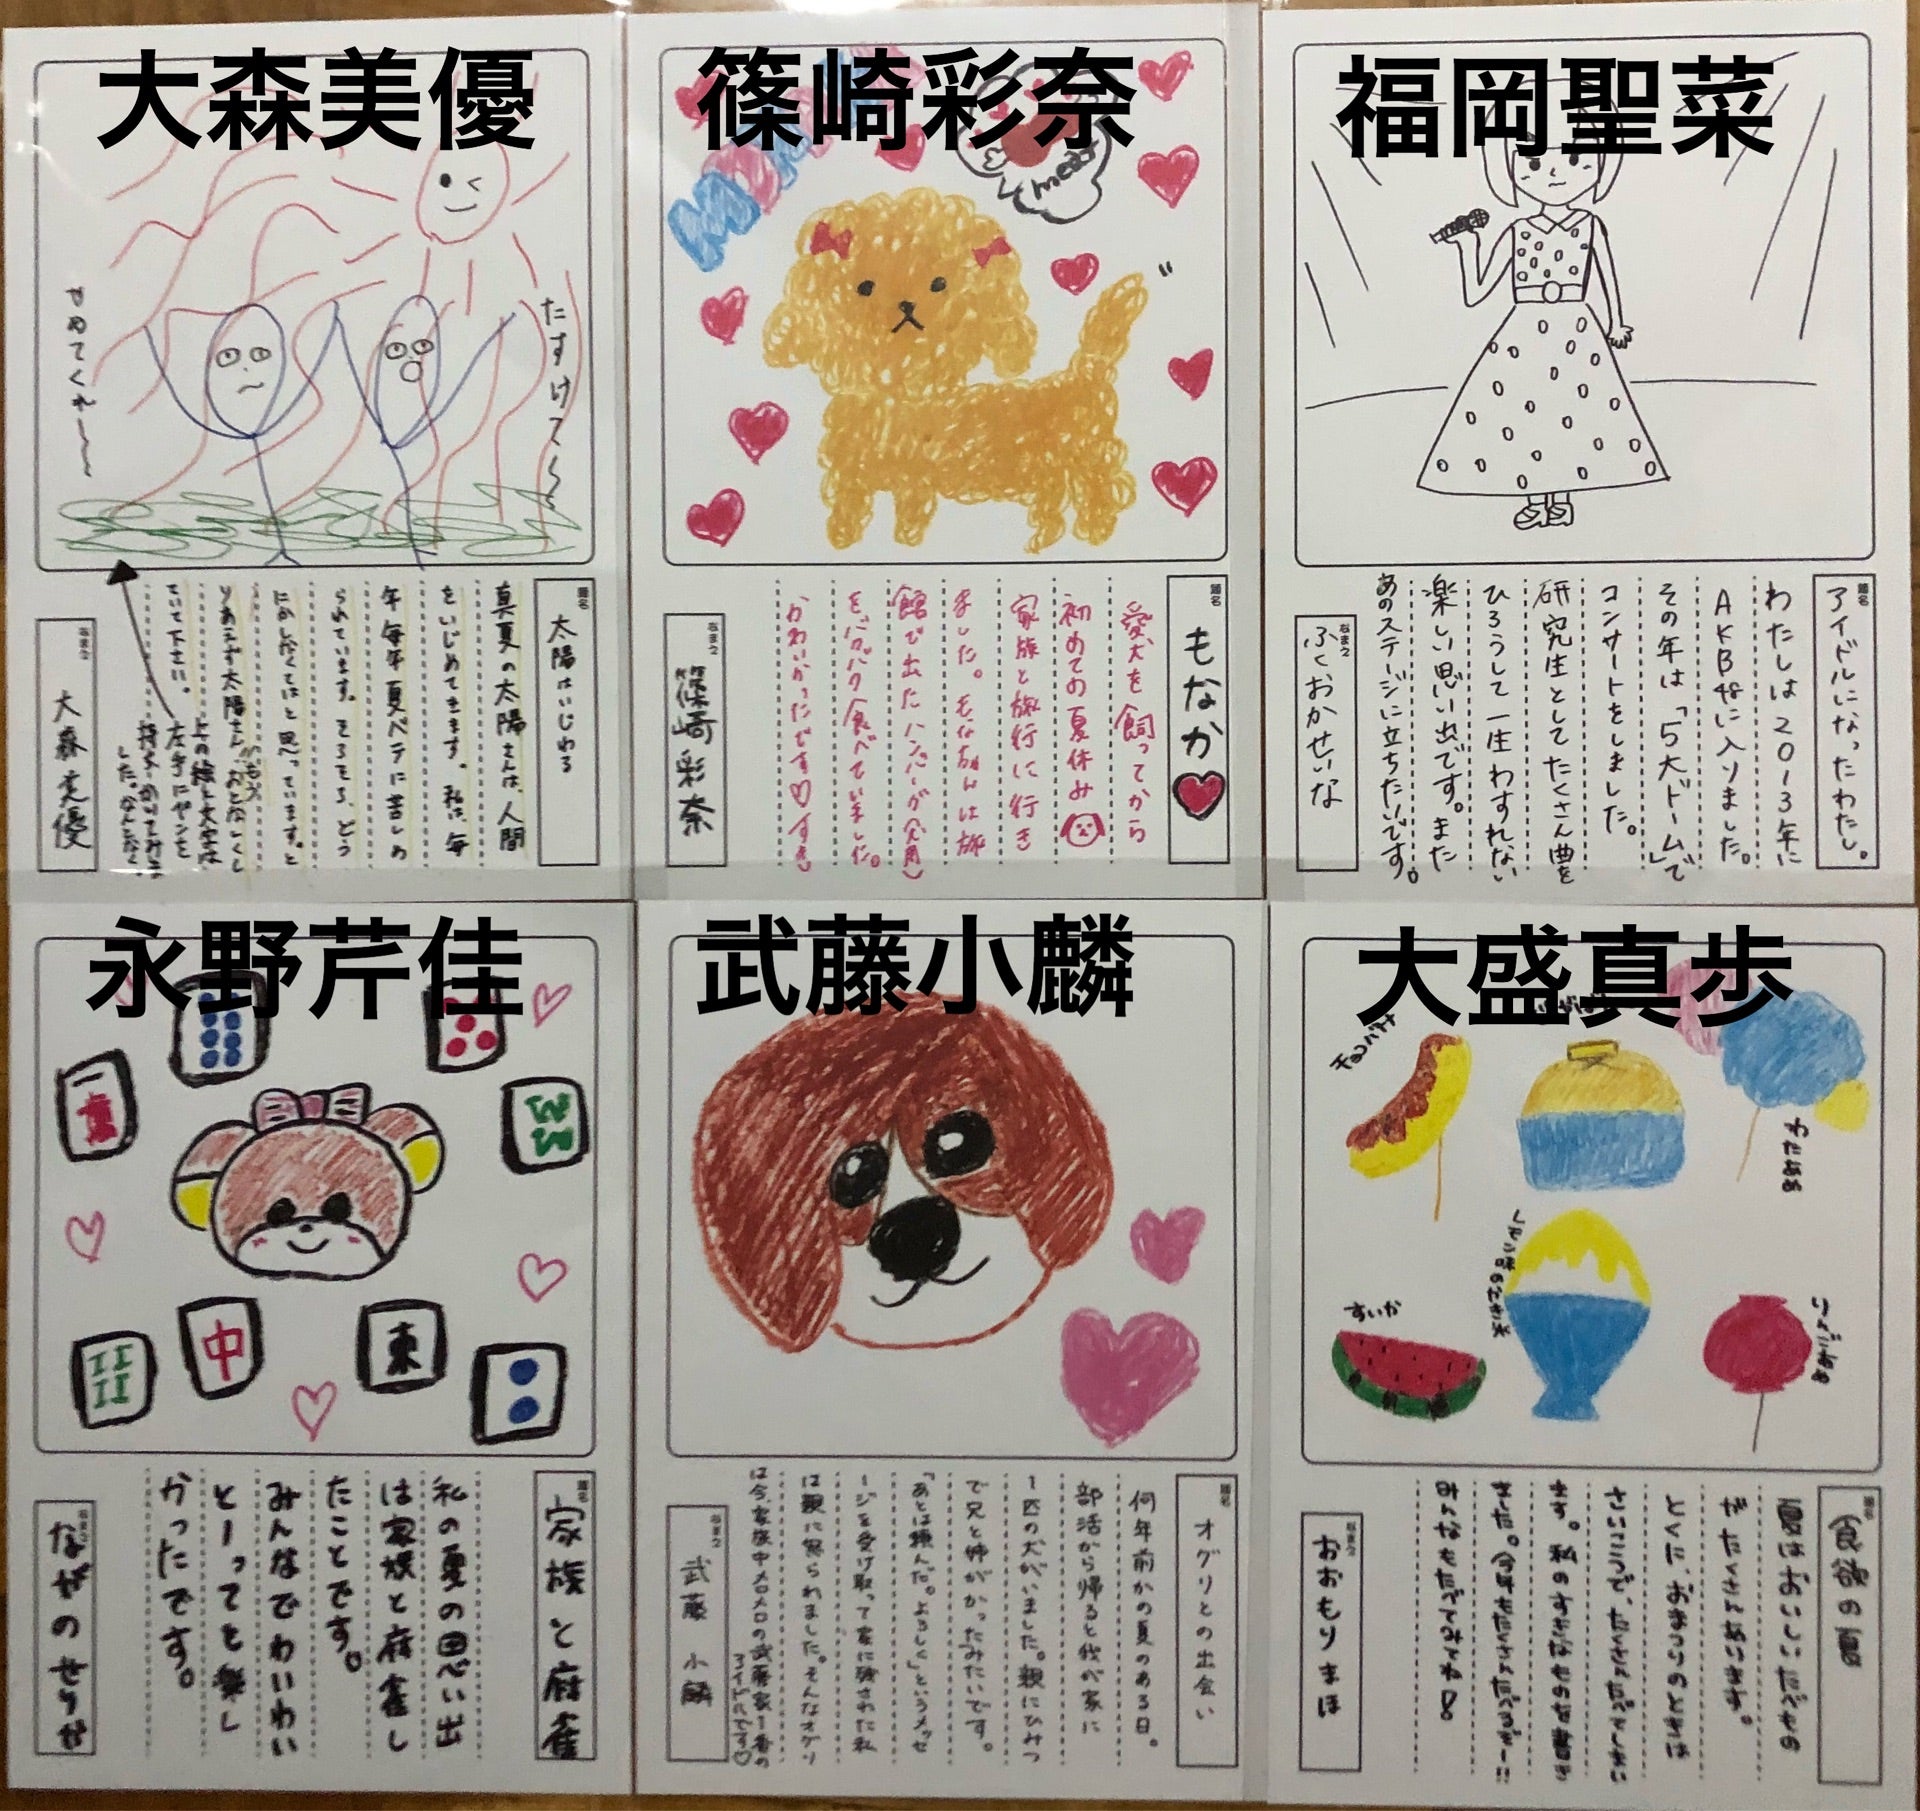 大森美優
やめてくれ〜〜〜
たすけて〜〜
題名
太陽はいじわる
真夏の太陽さんは、人間
をいじめてきます。私は、毎
年毎年夏バテに苦しめ
られています。そろそろ、どう
にかしなくてはと思っています。と
りあえず太陽さん、おとなしくし
ていて下さい。
上の絵と文字は
左手にペンを
持ち、かいてみま
した。なんとなく
なまえ
大森美優
篠崎彩奈
meat
題名
もなか
愛犬を飼ってから
初めての夏休み
家族と旅行に行き
ました。もなちゃんは旅
館で出たハンバーグ(犬用)
をパクパク食べていました。
かわいかったです♡すき
なまえ
篠崎彩奈
福岡聖菜
題名
アイドルになったわたし。
わたしは2013年に
AKB48に入りました。
その年は「5大ドーム」で
コンサートをしました。
研究生としてたくさん曲を
ひろうして一生わすれない
楽しい思い出です。また
あのステージに立ちたいです。
なまえ
ふくおかせいな
永野芹佳
一萬
中
東
題名
家族と麻雀
私の夏の思い出
は家族と麻雀し
たことです。
みんなでわいわい
とーっても楽し
かったです。
なまえ
ながのせりか
武藤小麟
題名
オグリとの出会い
何年前かの夏のある日。
部活から帰ると我が家に
1匹の犬がいました。親にひみつ
で兄と姉がかったみたいです。
「あとは頼んだ。よろしく」というメッセ
ージを受け取って家に残された私
は親に怒られました。そんなオグリ
は今、家族中メロメロの武藤家1番の
アイドルです♡
なまえ
武藤 小麟
大盛真歩
チョコバナナ
わたあめ
レモン味のかき氷
すいか
りんごあめ
題名
食欲の夏
夏はおいしいたべもの
がたくさんあります。
とくに、おまつりのときは
さいこうで、たくさんたべてしまい
ます。私のすきなものを書き
ました。今年もたくさんたべるぞー!!
みんなもたべてみてね!
なまえ
おおもりまほ